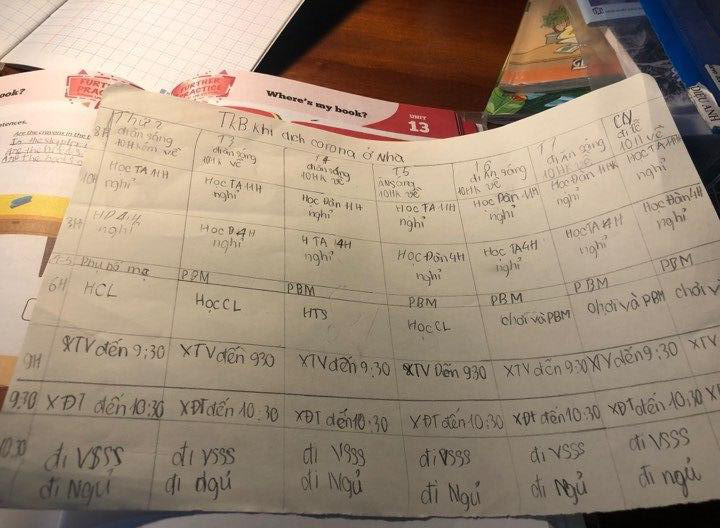 ook?
FURTHER PRACTICE
FURTHER PRACTICE
Where's my book?
UNIT 13
DIỆU ANH
tences.
TKB Khi dịch corona ở Nhà
8H
Thứ 2
đi ăn sáng
10H kém về
T3
đi ăn sáng
10HK về
T4
đi ăn sáng
10HK về
T5
ĂN sáng
10HK về
đi ăn sáng
10HK về
T7
đi Ăn sáng
10HK về
CN
đi lễ
10H về
10H
Học TA 11H
nghỉ
Học TA 11H
nghỉ
Học Đàn 11H
nghỉ
Học TA 11H
nghỉ
Học Đàn 11H
nghỉ
Học Đàn 11H
nghỉ
Học TA 11H
nghỉ
3H
HĐ 4H
nghỉ
Học Đ 4H
nghỉ
H TA 4H
nghỉ
Học Đàn 4H
nghỉ
Học TA 4H
nghỉ
Học TA 4H
nghỉ
Học Đàn 4H
nghỉ
Phụ bố mẹ
PBM
PBM
PBM
PBM
PBM
PBM
6H
HCL
Học CL
HTS
Học CL
chơi và PBM
chơi và PBM
chơi và
9H
XTV đến 9:30
XTV đến 930
XTV đến 9:30
XTV Đến 930
XTV đến 9:30
XTV đến 9:30
XTV
9:30
XĐT đến 10:30
XĐT đến 10:30
XĐT đến 10:30
XĐT đến 10:30
XĐT đến 10:30
XĐT đến 10:30
10:30
đi VSSS
đi Ngủ
đi VSSS
đi ngủ
đi VSSS
đi Ngủ
đi VSSS
đi Ngủ
đi VSSS
đi Ngủ
đi VSSS
đi ngủ